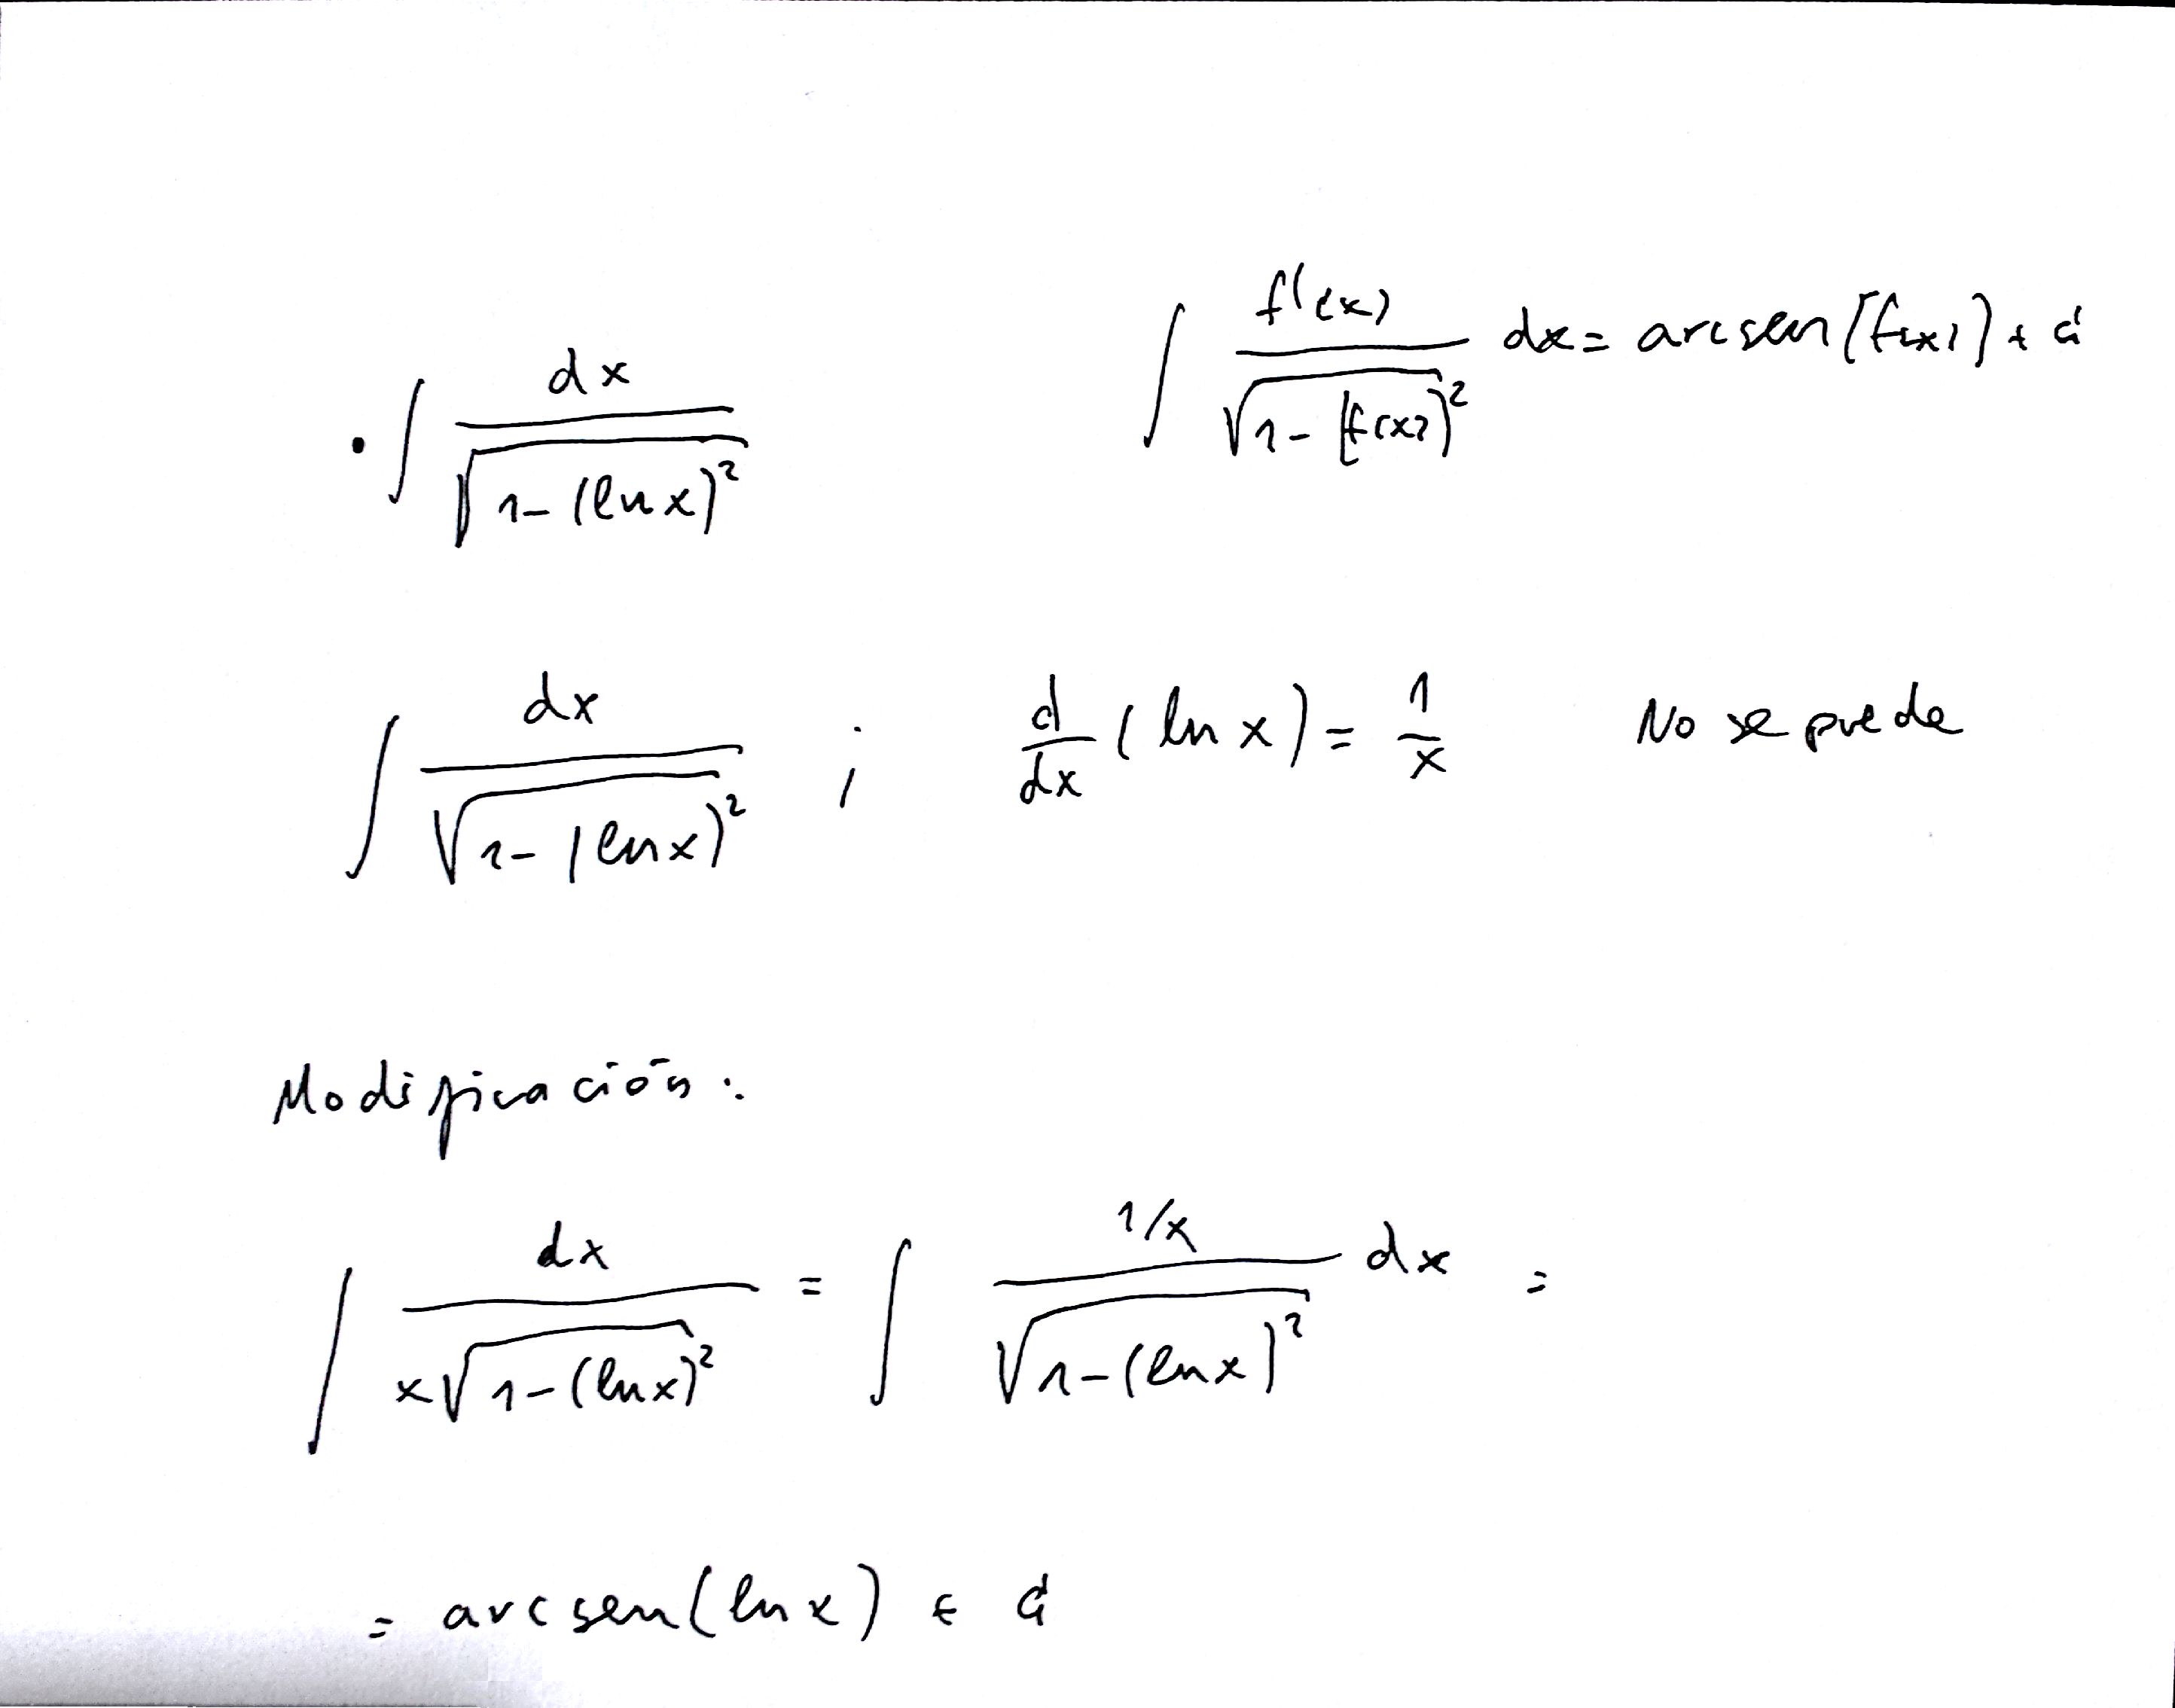 • ∫ dx / √(1-(ln x)²)    ∫ f'(x) / √(1-[f(x)]²) dx = arcsen[f(x)] + C
∫ dx / √(1-(ln x)²) ;    d/dx (ln x) = 1/x    No se puede
Modificación:
∫ dx / x√(1-(ln x)²) = ∫ 1/x / √(1-(ln x)²) dx =
= arcsen(ln x) + C